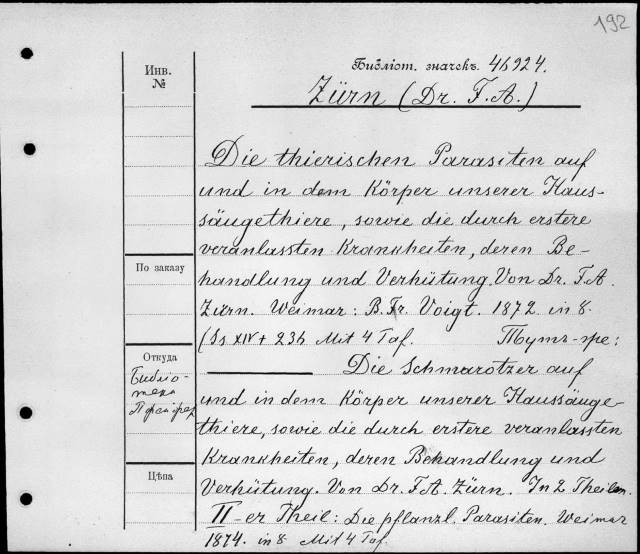 192
Библіот. значекъ. 46924.
Инв.
№
Zürn (Dr. F. A.)
Die thierischen Parasiten auf
und in dem Körper unserer Haus-
säugethiere, sowie die durch erstere
veranlassten Krankheiten, deren Be-
По заказу
handlung und Verhütung. Von Dr. F. A.
Zürn. Weimar: B. Fr. Voigt. 1872 in 8.
(Ss XIV + 236 Mit 4 Taf. Тутъ-же:
Откуда
Библіо-
тека
Die Schmarotzer auf
und in dem Körper unserer Haussäuge-
thiere, sowie die durch erstere veranlassten
Krankheiten, deren Behandlung und
Цѣна
Verhütung. Von Dr. F. A. Zürn. In 2 Theilen.
II-er Theil: Die pflanzl. Parasiten. Weimar
1874. in 8. Mit 4 Taf.